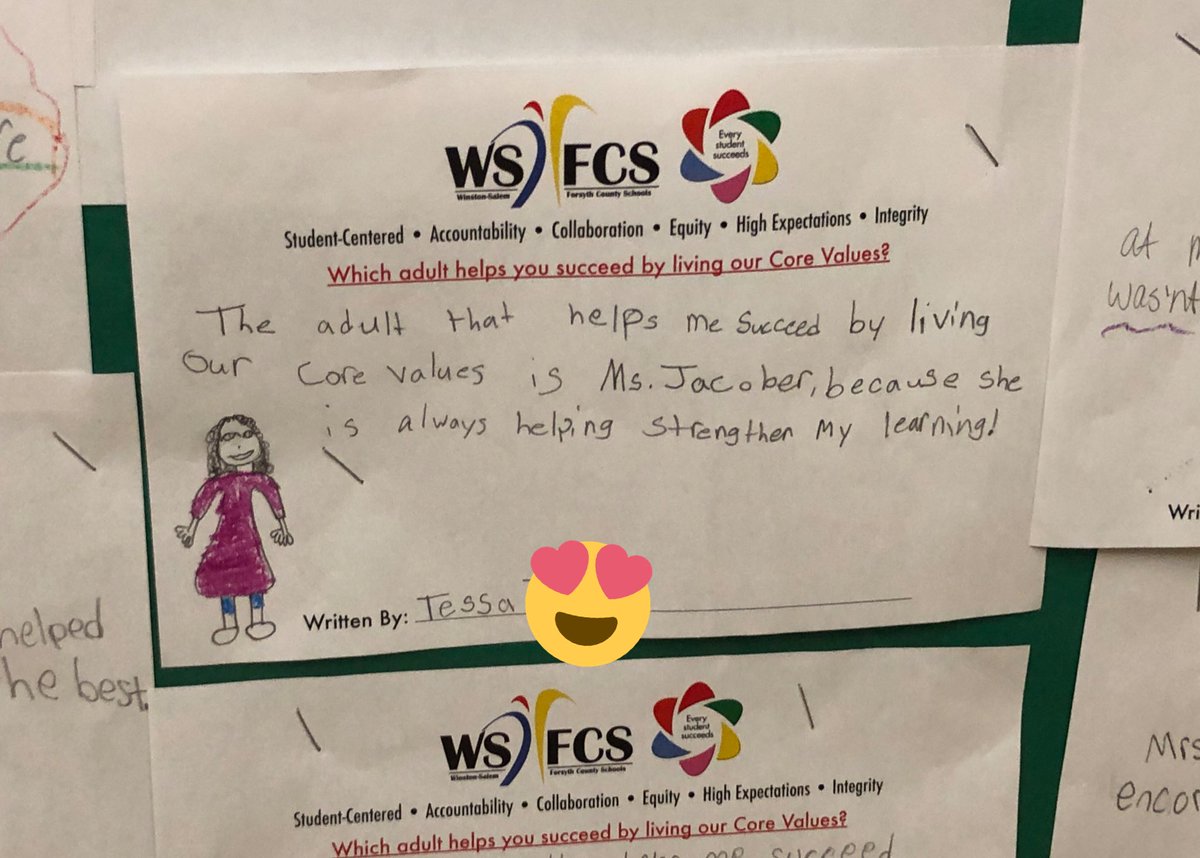 re
WS FCS
Winston-Salem Forsyth County Schools
Every
student
succeeds
Student-Centered • Accountability • Collaboration • Equity • High Expectations • Integrity
Which adult helps you succeed by living our Core Values?
The adult that helps me succeed by living
our core values is Ms. Jacober, because she
is always helping strengthen my learning!
Written By: Tessa
at
was'nt
Wri
helped
he best.
WS FCS
Winston-Salem Forsyth County Schools
Every
student
succeeds
Student-Centered • Accountability • Collaboration • Equity • High Expectations • Integrity
Which adult helps you succeed by living our Core Values?
me succeed
Mrs
encor